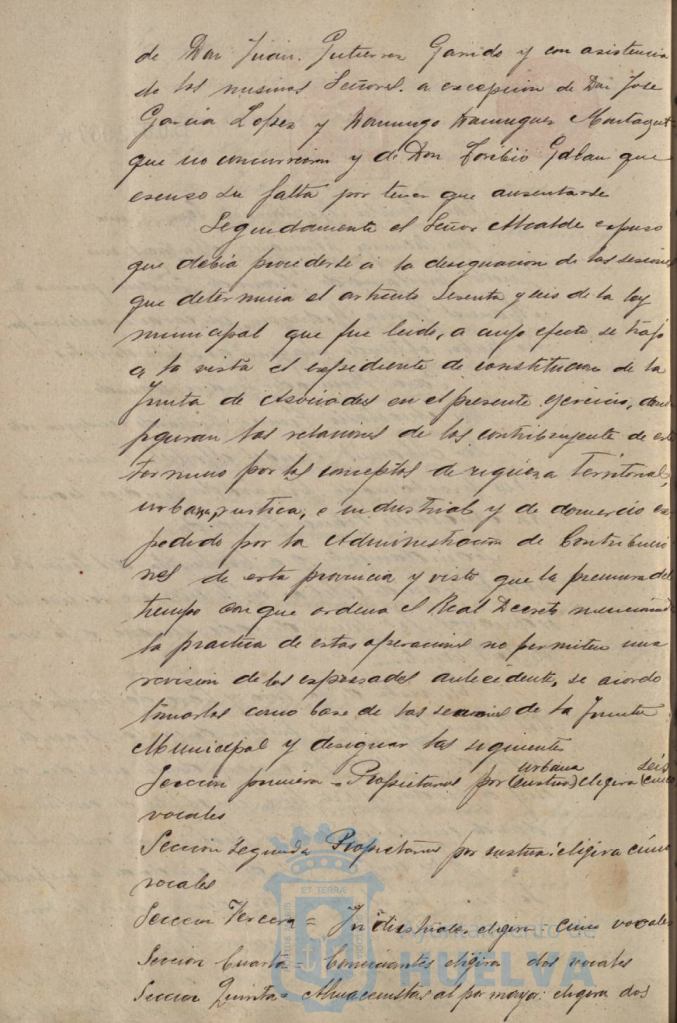 de Don Juan. Gutierrez Garrido y con asistencia
de los mismos Señores. a excepcion de Don Jose
Garcia Lopez y Domingo Dominguez
que no concurrieron y de Don Toribio Galban que
escuso su falta por tener que ausentarse
Seguidamente el Señor Alcalde espuso
que debia procederse á la designacion de las sesiones
que determina el articulo sesenta y seis de la ley
municipal que fue leido, a cuyo efecto se trajo
á la vista el espediente de constitucion de la
Junta de Asociados en el presente ejercicio, donde
figuran las relaciones de los contribuyente de este
termino por los conceptos de riqueza territorial,
urbana, rustica, e industrial y de comercio es
pedido por la Administracion de Contribucio
nes de esta provincia y visto que la premura del
tiempo con que ordena el Real Decreto mencionado
la practica de estas operaciones no permiten una
revision de los espresados antecedente, se acordo
tomarlos como base de las secciones de la Junta
Municipal y designar las siguiente
urbana seis
Seccion primera = Propietarios por (rustica) eligira (cinco)
vocales
Seccion Segunda Propietarios por rustica: eligira cinco
vocales
Seccion Tercera = Industriales eligira cinco vocales
Seccion Cuarta = Comerciantes eligira dos vocales
Seccion Quinta = Almacenistas al por mayor: eligira dos
ET TERRÆ
Ayuntamiento de
HUELVA